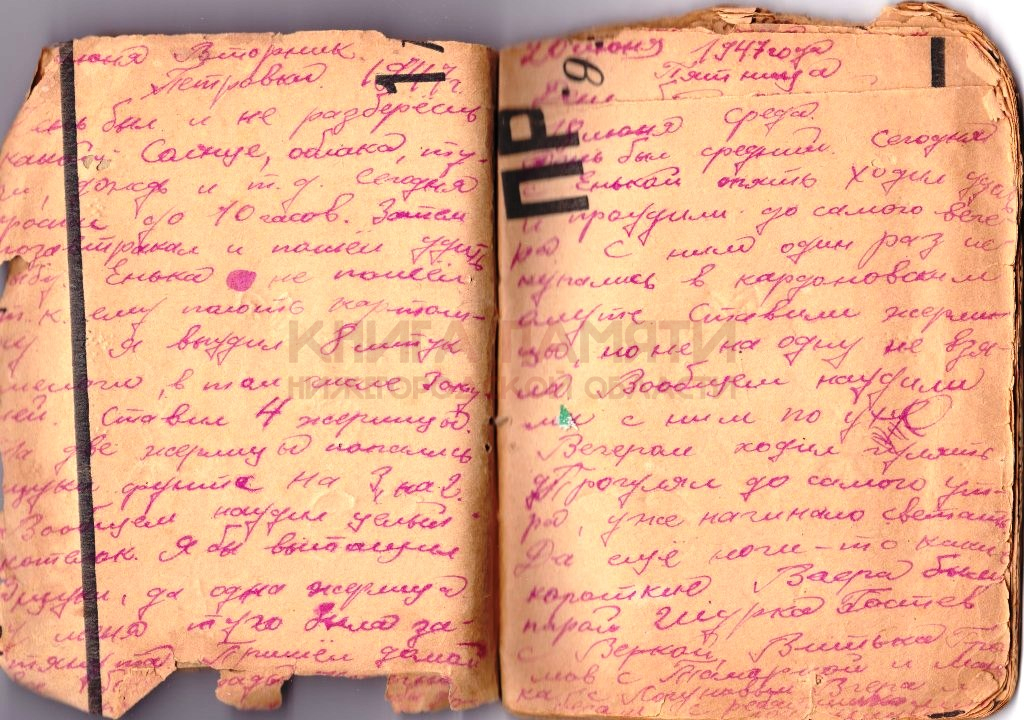 июня Вторник.
Петровка 1947г.
День был и не разберёшь
какой: Солнце, облака, ту-
чи, дождь и т.д. Сегодня
проспал до 10 часов. Затем
позавтракал и пошёл удить
рыбу. Енька не пошёл
т.к. ему полоть картош-
ку Я выудил 8 штук
мелочи, в том числе
Ставил 4 жерлицы.
На две жерлицы попались
щуки фунта на 3, на 2.
Вообщем наудил целый
котелок. Я бы вытащил
3 щуки, да одна жерлица
у меня туго была за-
тянута. Пришёл домой
17
20 июня 1947 года
Пятница
День
ПР
9
18 июня среда.
День был средний. Сегодня
с Енькой опять ходил удить
и проудили до самого вече-
ра С ним один раз ис-
купались в кардоновским
омуте Ставили жерли-
цы, но ни на одну не взя-
ла. Вообщем наудили
мы с ним по ухе
Вечером ходил гулять
Прогулял до самого ут-
ра, уже начинало светать
Да ещё ночи-то какие
короткие Вчера были
парой Шурка Гостев
с Веркой, Витька
с Тамарой и
КНИГА ПАМЯТИ
НИЖЕГОРОДСКОЙ ОБЛАСТИ